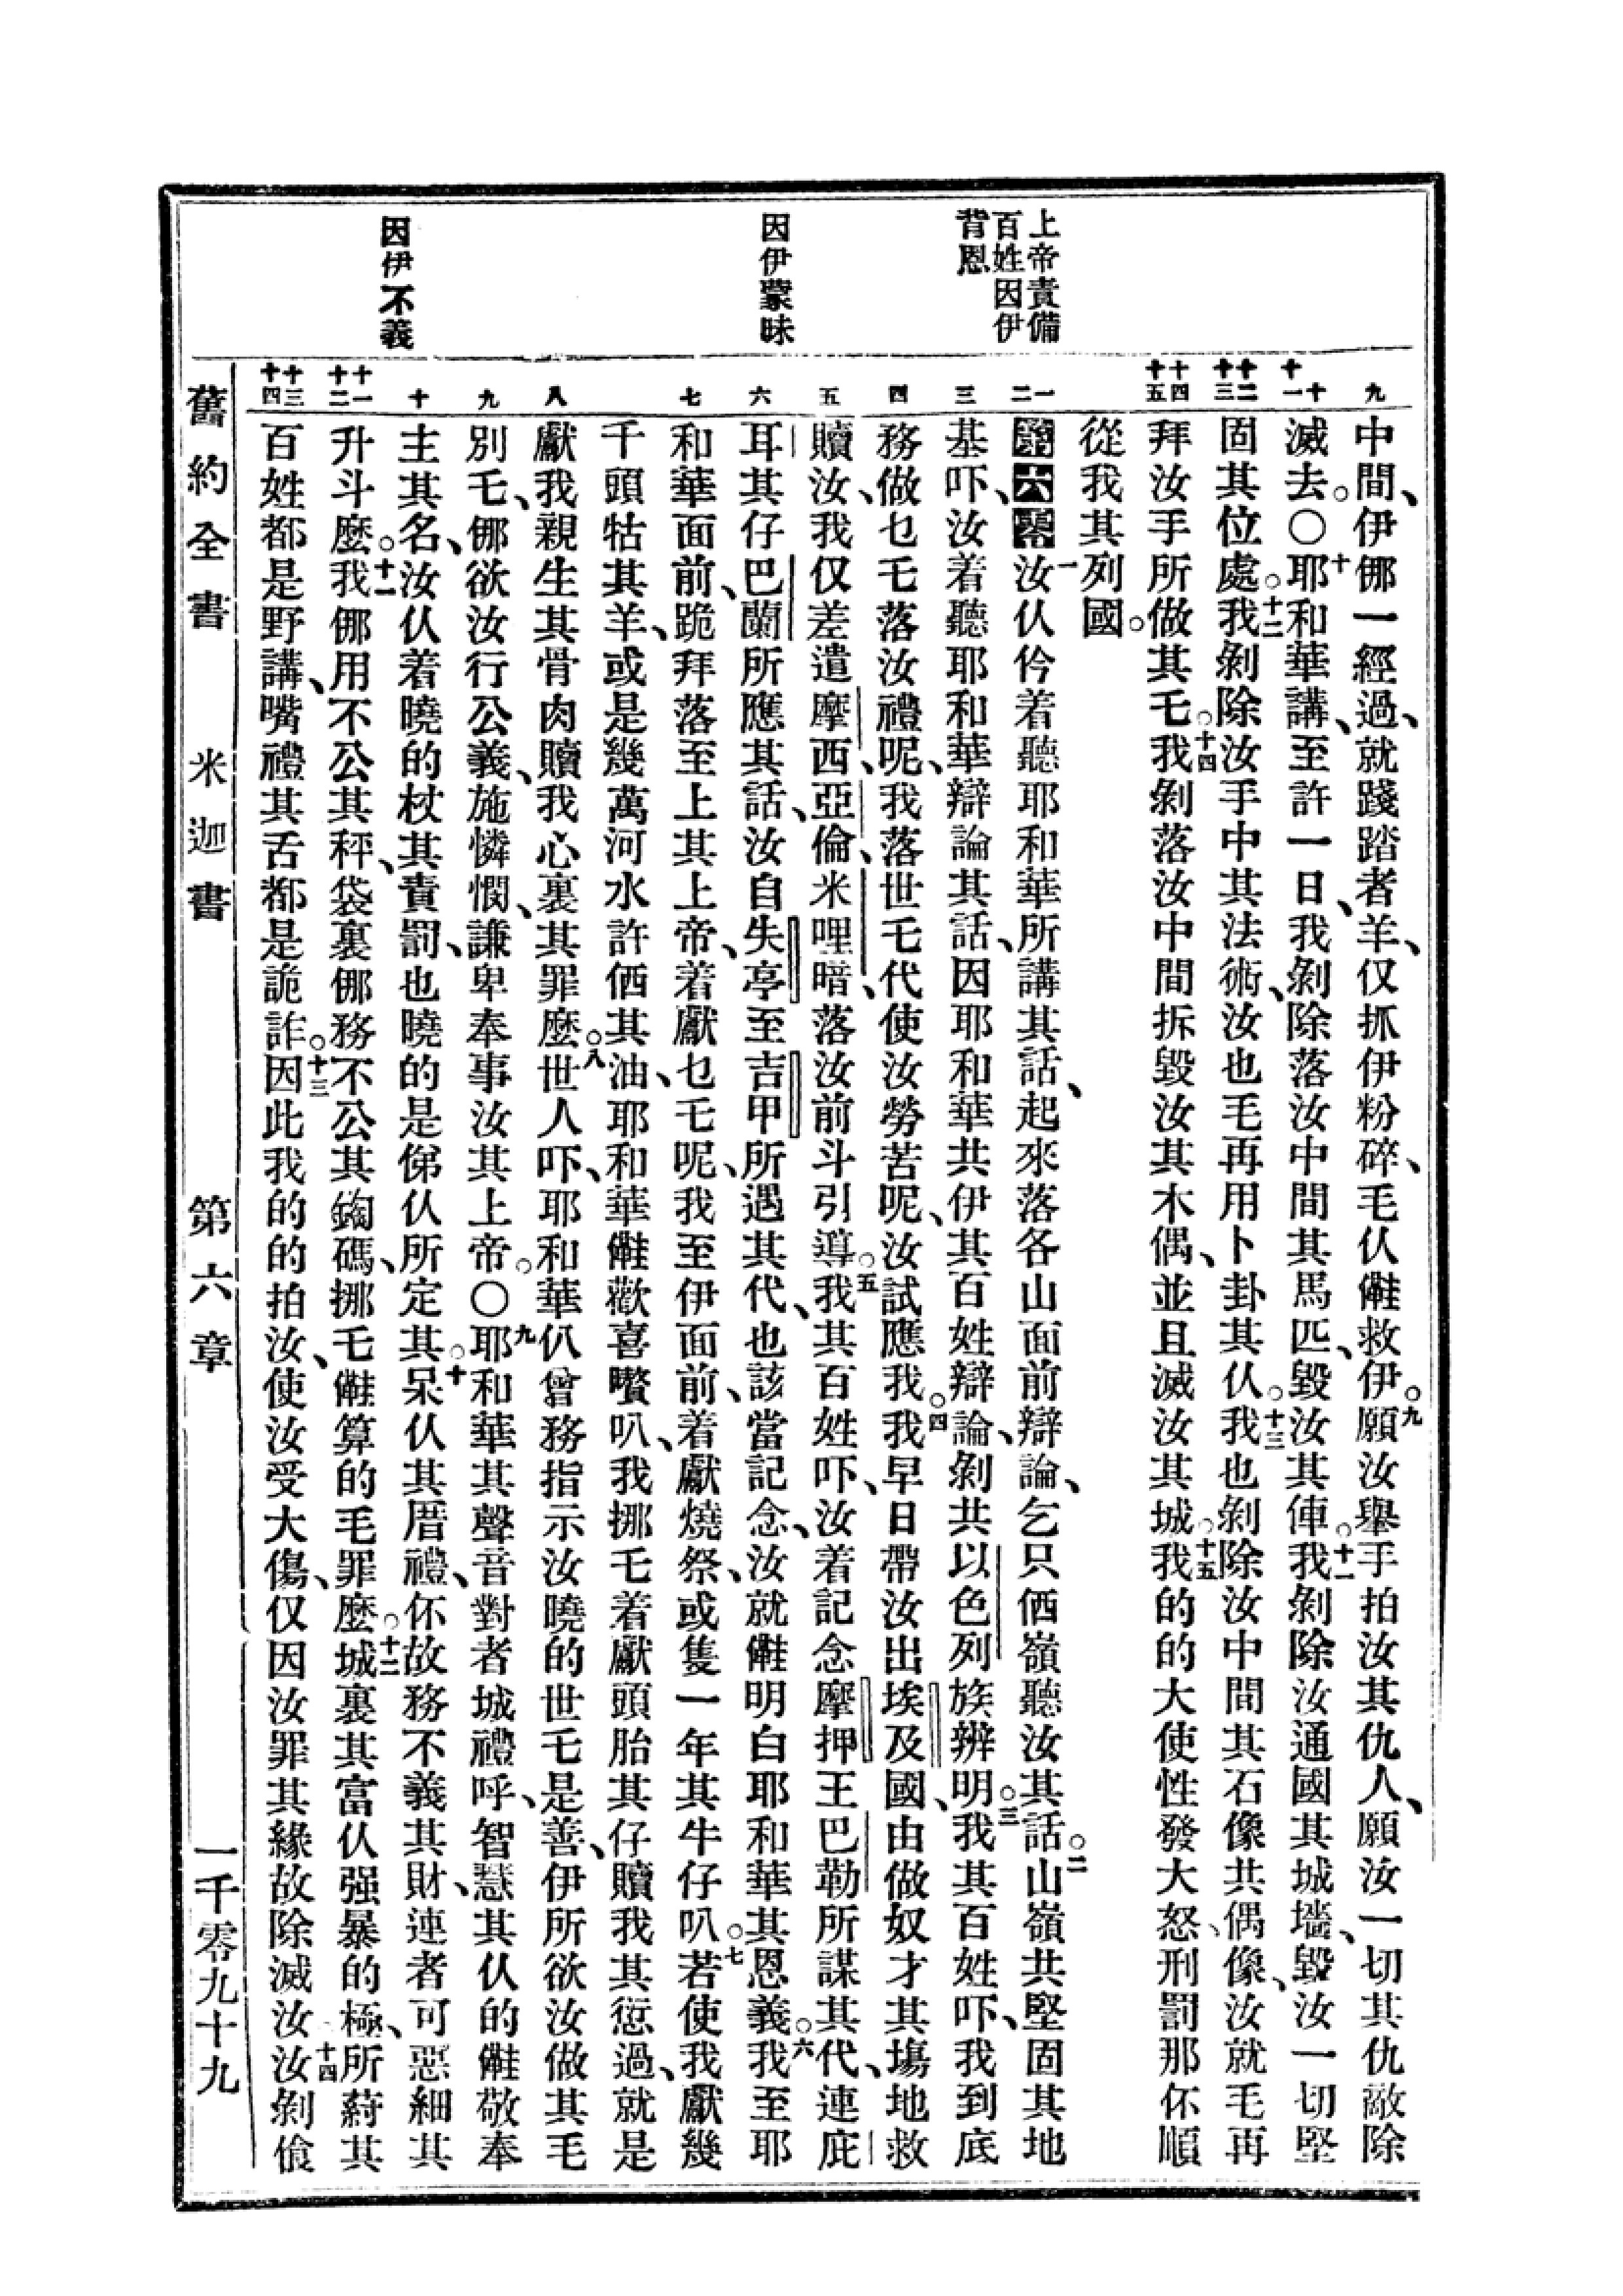 上帝責備
百姓因伊
背恩
因伊蒙昧
因伊不義
九
十
十一
十二
十三
十四
十五
一
二
三
四
五
六
七
八
九
十
十一
十二
十三
十四
中間、伊㑚一經過、就踐踏者羊、仅抓伊粉碎、毛仈𣍐救伊。九願汝舉手拍汝其仇人、願汝一切其仇敵除
滅去。〇十耶和華講、至許一日、我剝除落汝中間其馬匹、毀汝其俥。十一我剝除汝通國其城墻、毀汝一切堅
固其位處。十二我剝除汝手中其法術、汝也毛再用卜卦其仈。十三我也剝除汝中間其石像共偶像、汝就毛再
拜汝手所做其乇。十四我剝落汝中間拆毀汝其木偶、並且滅汝其城。十五我的的大使性發大怒、刑罰那伓順
從我其列國。
第六章 一汝仈仱着聽耶和華所講其話、起來落各山面前辯論、乞只㒲嶺聽汝其話。二山嶺共堅固其地
基吓、汝着聽耶和華辯論其話、因耶和華共伊其百姓辯論、剝共以色列族辨明。三我其百姓吓、我到底
務做乜乇落汝禮呢、我落世乇代使汝勞苦呢、汝試應我。四我早日帶汝出埃及國、由做奴才其塲地救
贖汝、我仅差遣摩西、亞倫、米哩暗落汝前斗引導。五我其百姓吓、汝着記念摩押王巴勒所謀其代、連庇
耳其仔巴蘭所應其話、汝自失亭至吉甲所遇其代、也該當記念、汝就𣍐明白耶和華其恩義。六我至耶
和華面前、跪拜落至上其上帝、着獻乜乇呢、我至伊面前、着獻燒祭、或隻一年其牛仔叭。七若使我獻幾
千頭牯其羊、或是幾萬河水許㒲其油、耶和華𣍐歡喜囋叭、我挪乇着獻頭胎其仔贖我其愆過、就是
獻我親生其骨肉贖我心裏其罪麼。八世人吓、耶和華仈曾務指示汝曉的世乇是善、伊所欲汝做其毛
別乇、㑚欲汝行公義、施憐憫、謙卑奉事汝其上帝。〇九耶和華其聲音對者城禮呼、智慧其仈的𣍐敬奉
主其名、汝仈着曉的杖其責罰、也曉的是俤仈所定其。十呆仈其厝禮、伓故務不義其財、連者可惡細其
升斗麼。十一我㑚用不公其秤、袋裏㑚務不公其鍧碼、挪乇𣍐算的毛罪麼。十二城裏其富仈强暴的極、所蒔其
百姓都是野講、嘴禮其舌都是詭詐。十三因此我的的拍汝、使汝受大傷、仅因汝罪其緣故除滅汝。十四汝剝偹
舊約全書　米迦書　第六章　一千零九十九